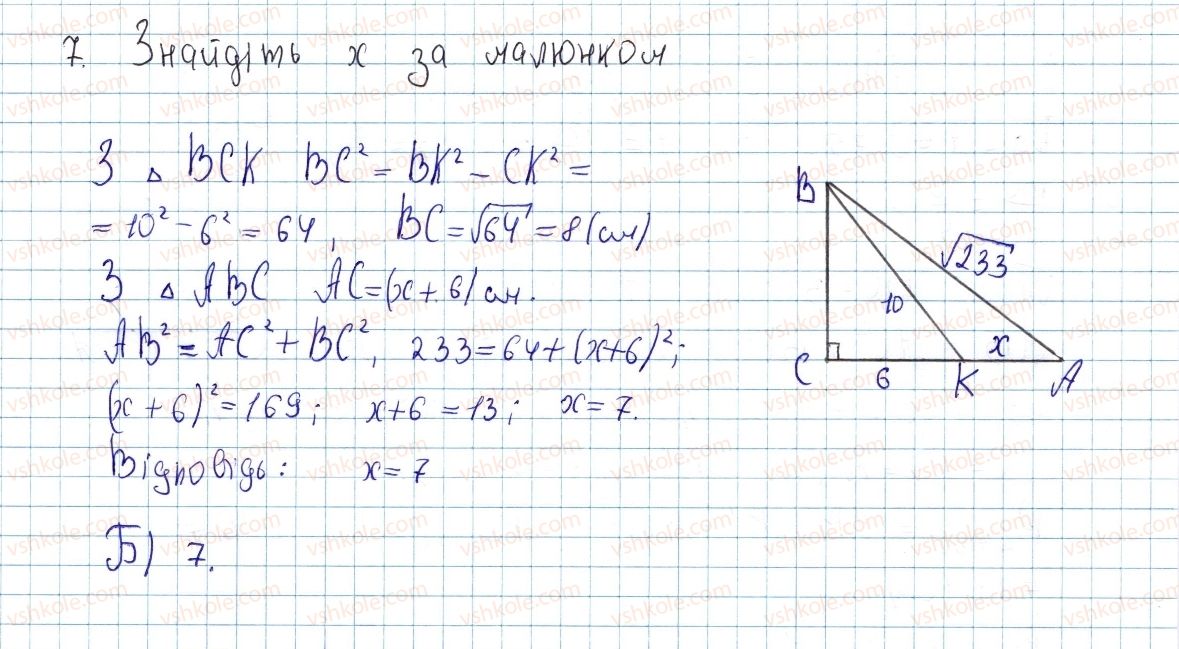 7. Знайдіть x за малюнком
З △ BCK BC² = BK² - CK² =
= 10² - 6² = 64, BC = √64 = 8 (см)
З △ ABC AC = (x + 6) см.
AB² = AC² + BC², 233 = 64 + (x+6)²;
(x + 6)² = 169; x+6 = 13; x = 7.
Відповідь: x = 7
Б) 7.
B
√233
10
x
C
6
K
A
vshkole.com